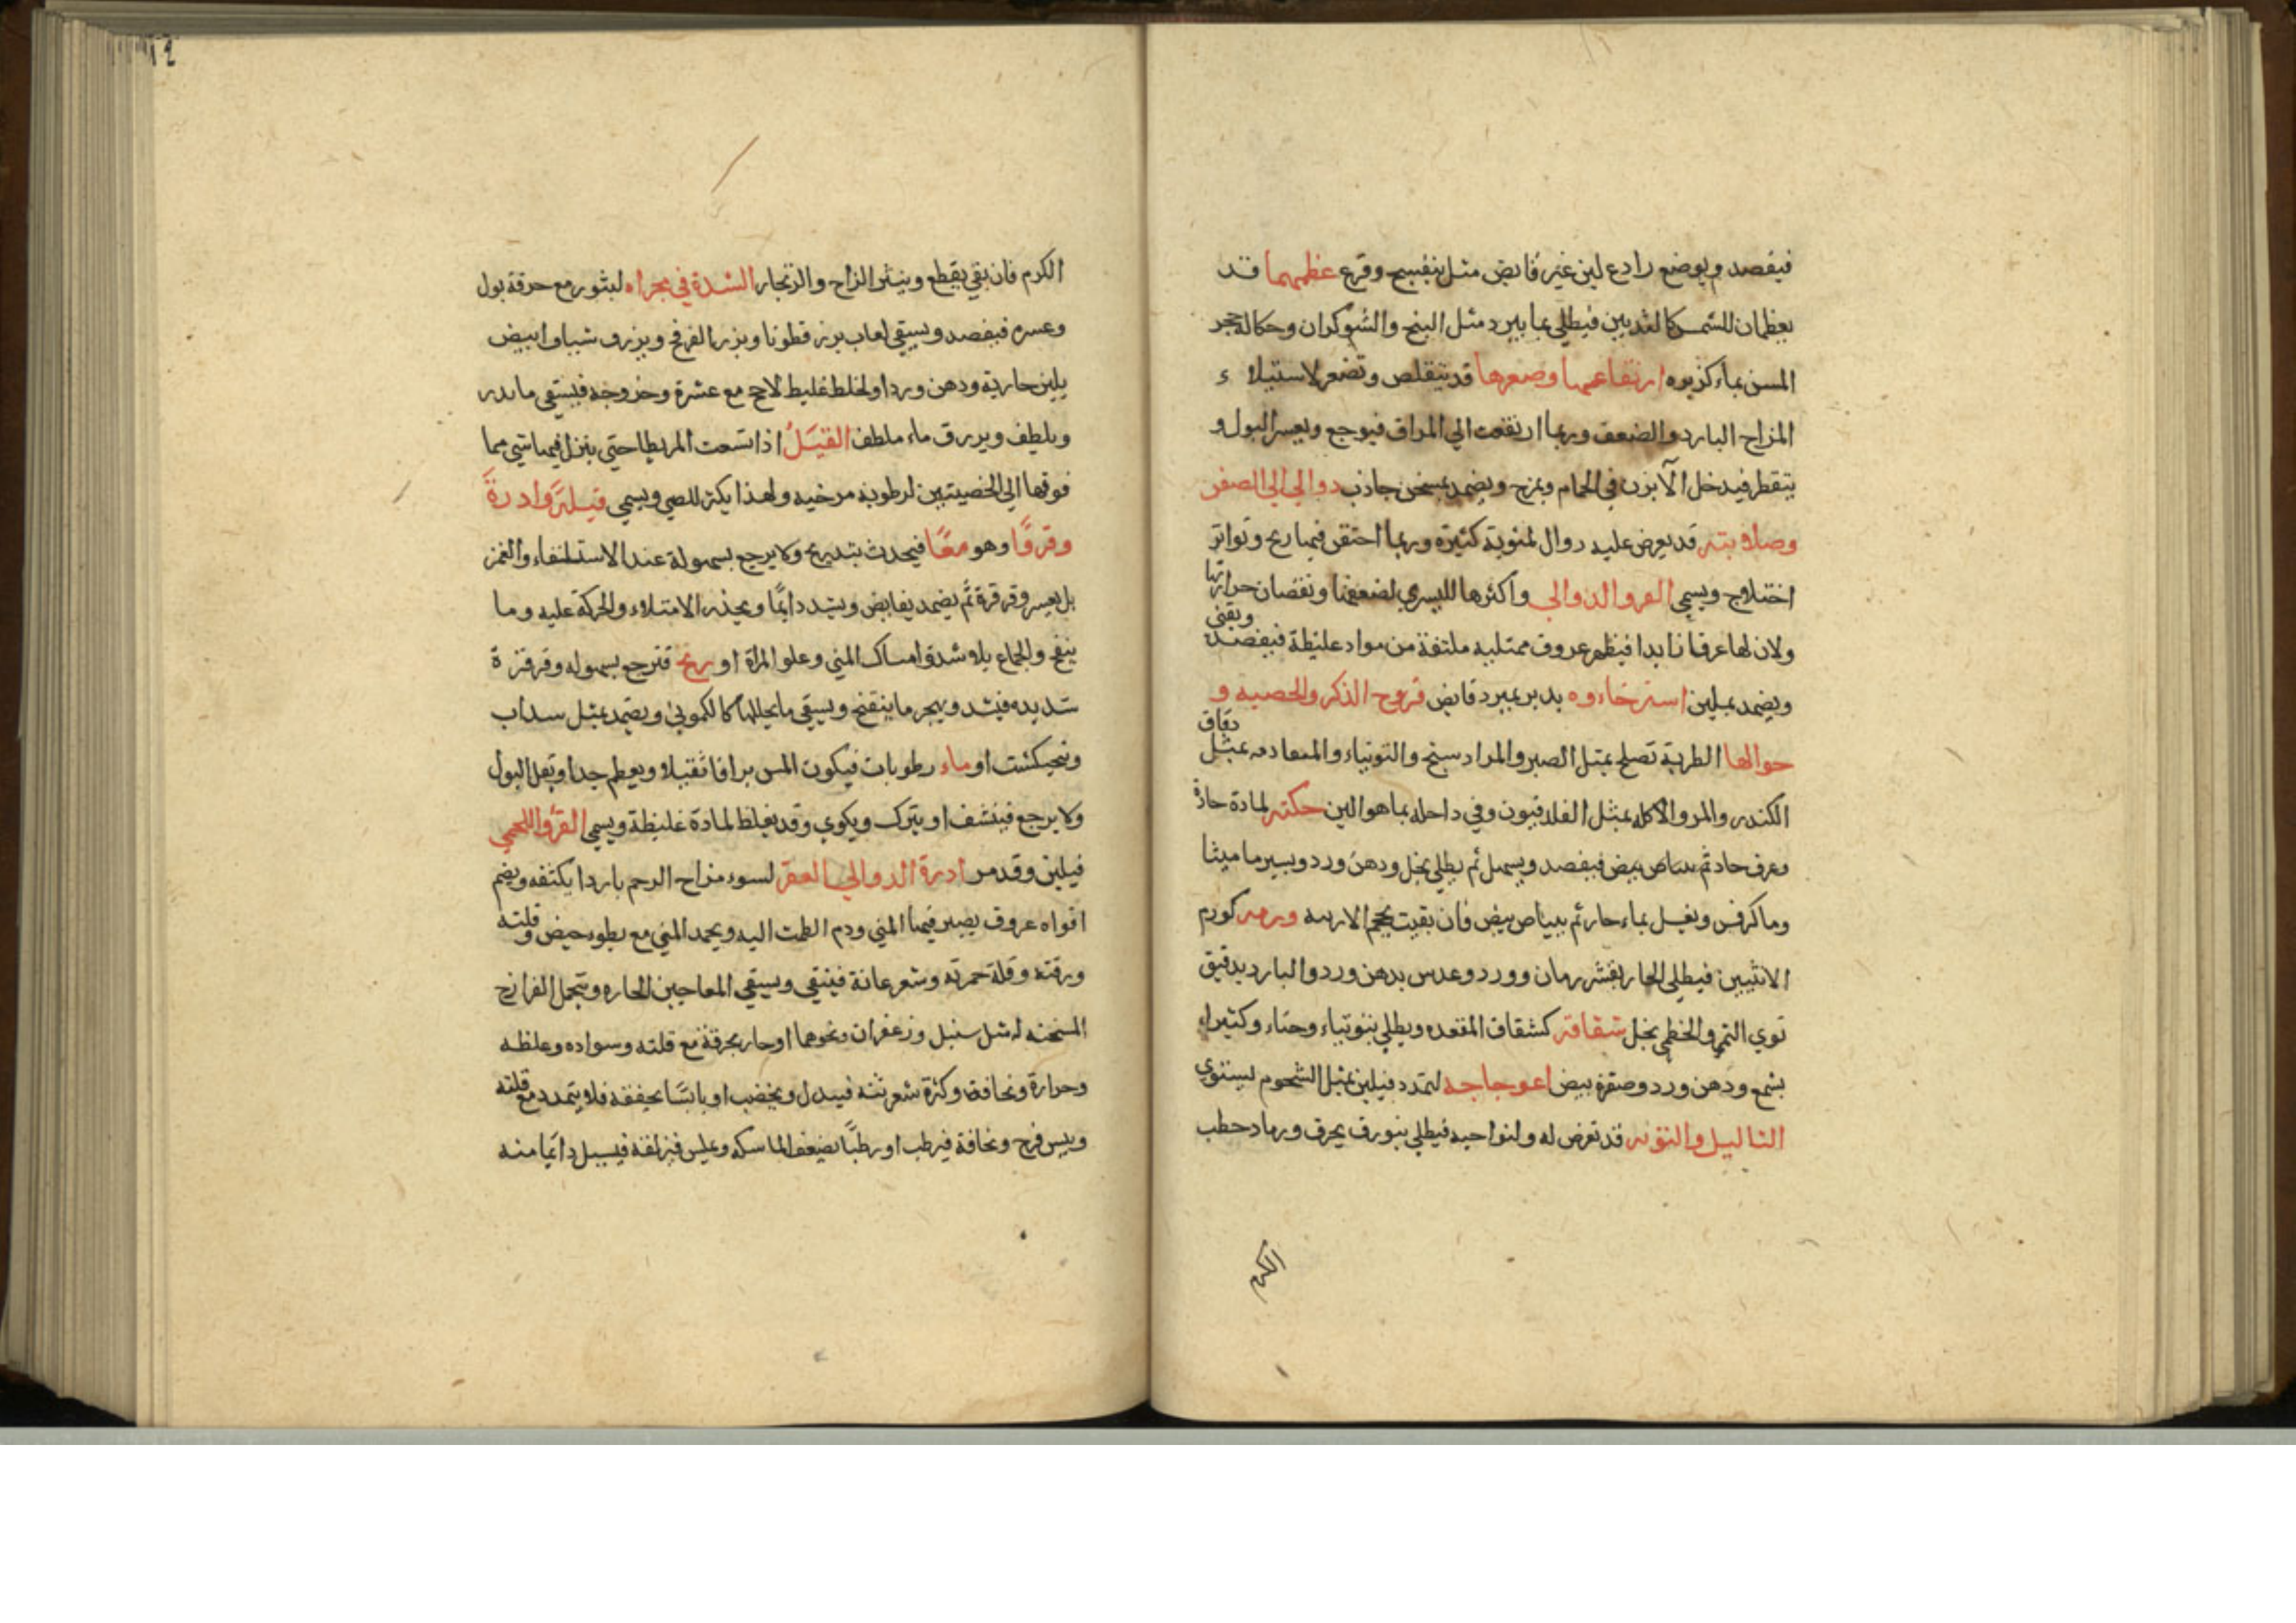 فيفصد ويوضع رادع لين غير قابض مثل بنفسج وقرع عظمهما قد
يعظمان للشمس كالثديين فيطلي بما يبرد مثل البنج والشوكران وحكاكة حجر
المسن بماء كزبره ارتفاعهما وصغرها قد يتقلص وتصغر لاستيلاء
المزاج البارد والضعف وربما ارتفعت الي المراق فيوجع ويعسر البول و
يتقطر فيدخل الآبزن في الحمام ويمرخ ويضمد بمسخن جاذب دوالي الصفن
وصلابته قد يعرض عليه دوال لمئوية كثيرة وربما احتقن فيها ريح وتواتر
اختلاج ويسمي القرو الدوالي واكثرها لليسري لضعفها ونقصان حرارتها
ولان لها عرقا زايدا فيظهر عروق ممتليه ملتفة من مواد غليظة فيفصد وينقى
ويضمد بملين استرخاءوه يدبر بمبرد قابض قروح الذكر والخصيه و
حوالها الطرية تصلح بمثل الصبر والمرادسنج والتوتياء بمثل دقاق
الكندر والمر والاكله بمثل الفلدفيون وفي داخله بما هو الين حكته لمادة حادة
وعرق حاد فيفصد ويسهل ثم يطلي بخل ودهن ورد ويسير ماميثا
وما كرفس ويغسل بماء حار ثم ببياض بيض فان بقيت يحجم ورمه كورم
الانثيين فيطلي الحار بقشر رمان وورد وعدس بدهن ورد والبارد بدقيق
نوي التمر والخطمي بخل شقاقه كشقاق المقعده ويطلي بتوتياء وحناء وكثيراء
بشمع ودهن ورد وصفرة بيض اعوجاجه لتمدد فيلين بمثل الشحوم ليستوي
الثاليل والتوته قد تعرض له ولنواحيه فيطلي ببورق يحرق ورماد حطب
الكرم
١٢
الكرم فان بقي يقطع وينثر الزاج والزنجار السدة في مجراه لبثور مع حرقة بول
وعسره فيفصد ويسقي لعاب بزر قطونا وبزر الفرفخ ويزرق شياف ابيض
بلبن جارية ودهن ورد او لخلط غليظ لاحج مع عسرة وخروجه فيسقي ما يدر
ويلطف ويزرق ماء ملطف القيل اذا اتسعت المريطا حتي ينزل فيها شي مما
فوقها الي الخصيتين لرطوبة مرخيه ولهذا يكثر للصبي ويسمي قيلة وادرة
وقروا وهو معا فيحدث بتدريج ولا يرجع بسهولة عند الاستلقاء والغمز
بل بعسر وقرقرة ثم يضمد بقابض ويشد دايما ويحذر الامتلاء والحركة عليه وما
ينفخ والجماع بلا شدة وامساك المني وعلو المراة او ريح فترجع بسهوله وقرقرة
شديده فيشد ويهجر ما ينفخ ويسقي ما يحللها كالكموني ويضمد بمثل سداب
وفنجنكشت او ماء رطوبات فيكون المس براقا ثقيلا ويعظم جدا ويقل البول
ولا يرجع فينشف او يترك ويكوي وقد يغلظ لمادة غليظة ويسمي القرو اللحمي
فيلين وقد مر ادرة الدوالي العقر لسوء مزاج الرحم باردا يكثفه ويضم
افواه عروق يصير فيها المني ودم الطمث اليه ويجمد المني مع بطوء حيض وقلته
ورقته وقلة حمرته وشعر عانة فينقي ويسقي المعاجين الحاره وتحمل الفرازج
المسخنه مثل سنبل وزعفران ونحوهما او حار يحرقه مع قلته وسواده وغلظه
وحرارة ونحافة وكثرة شعر فيبدل ويخصب او يابسا يجففه فلا يتمدد مع قلته
ويبس فرج ونحافة فيرطب او رطبا يضعف الماسكه ويملس فيزلقه فيسيل دايما منه